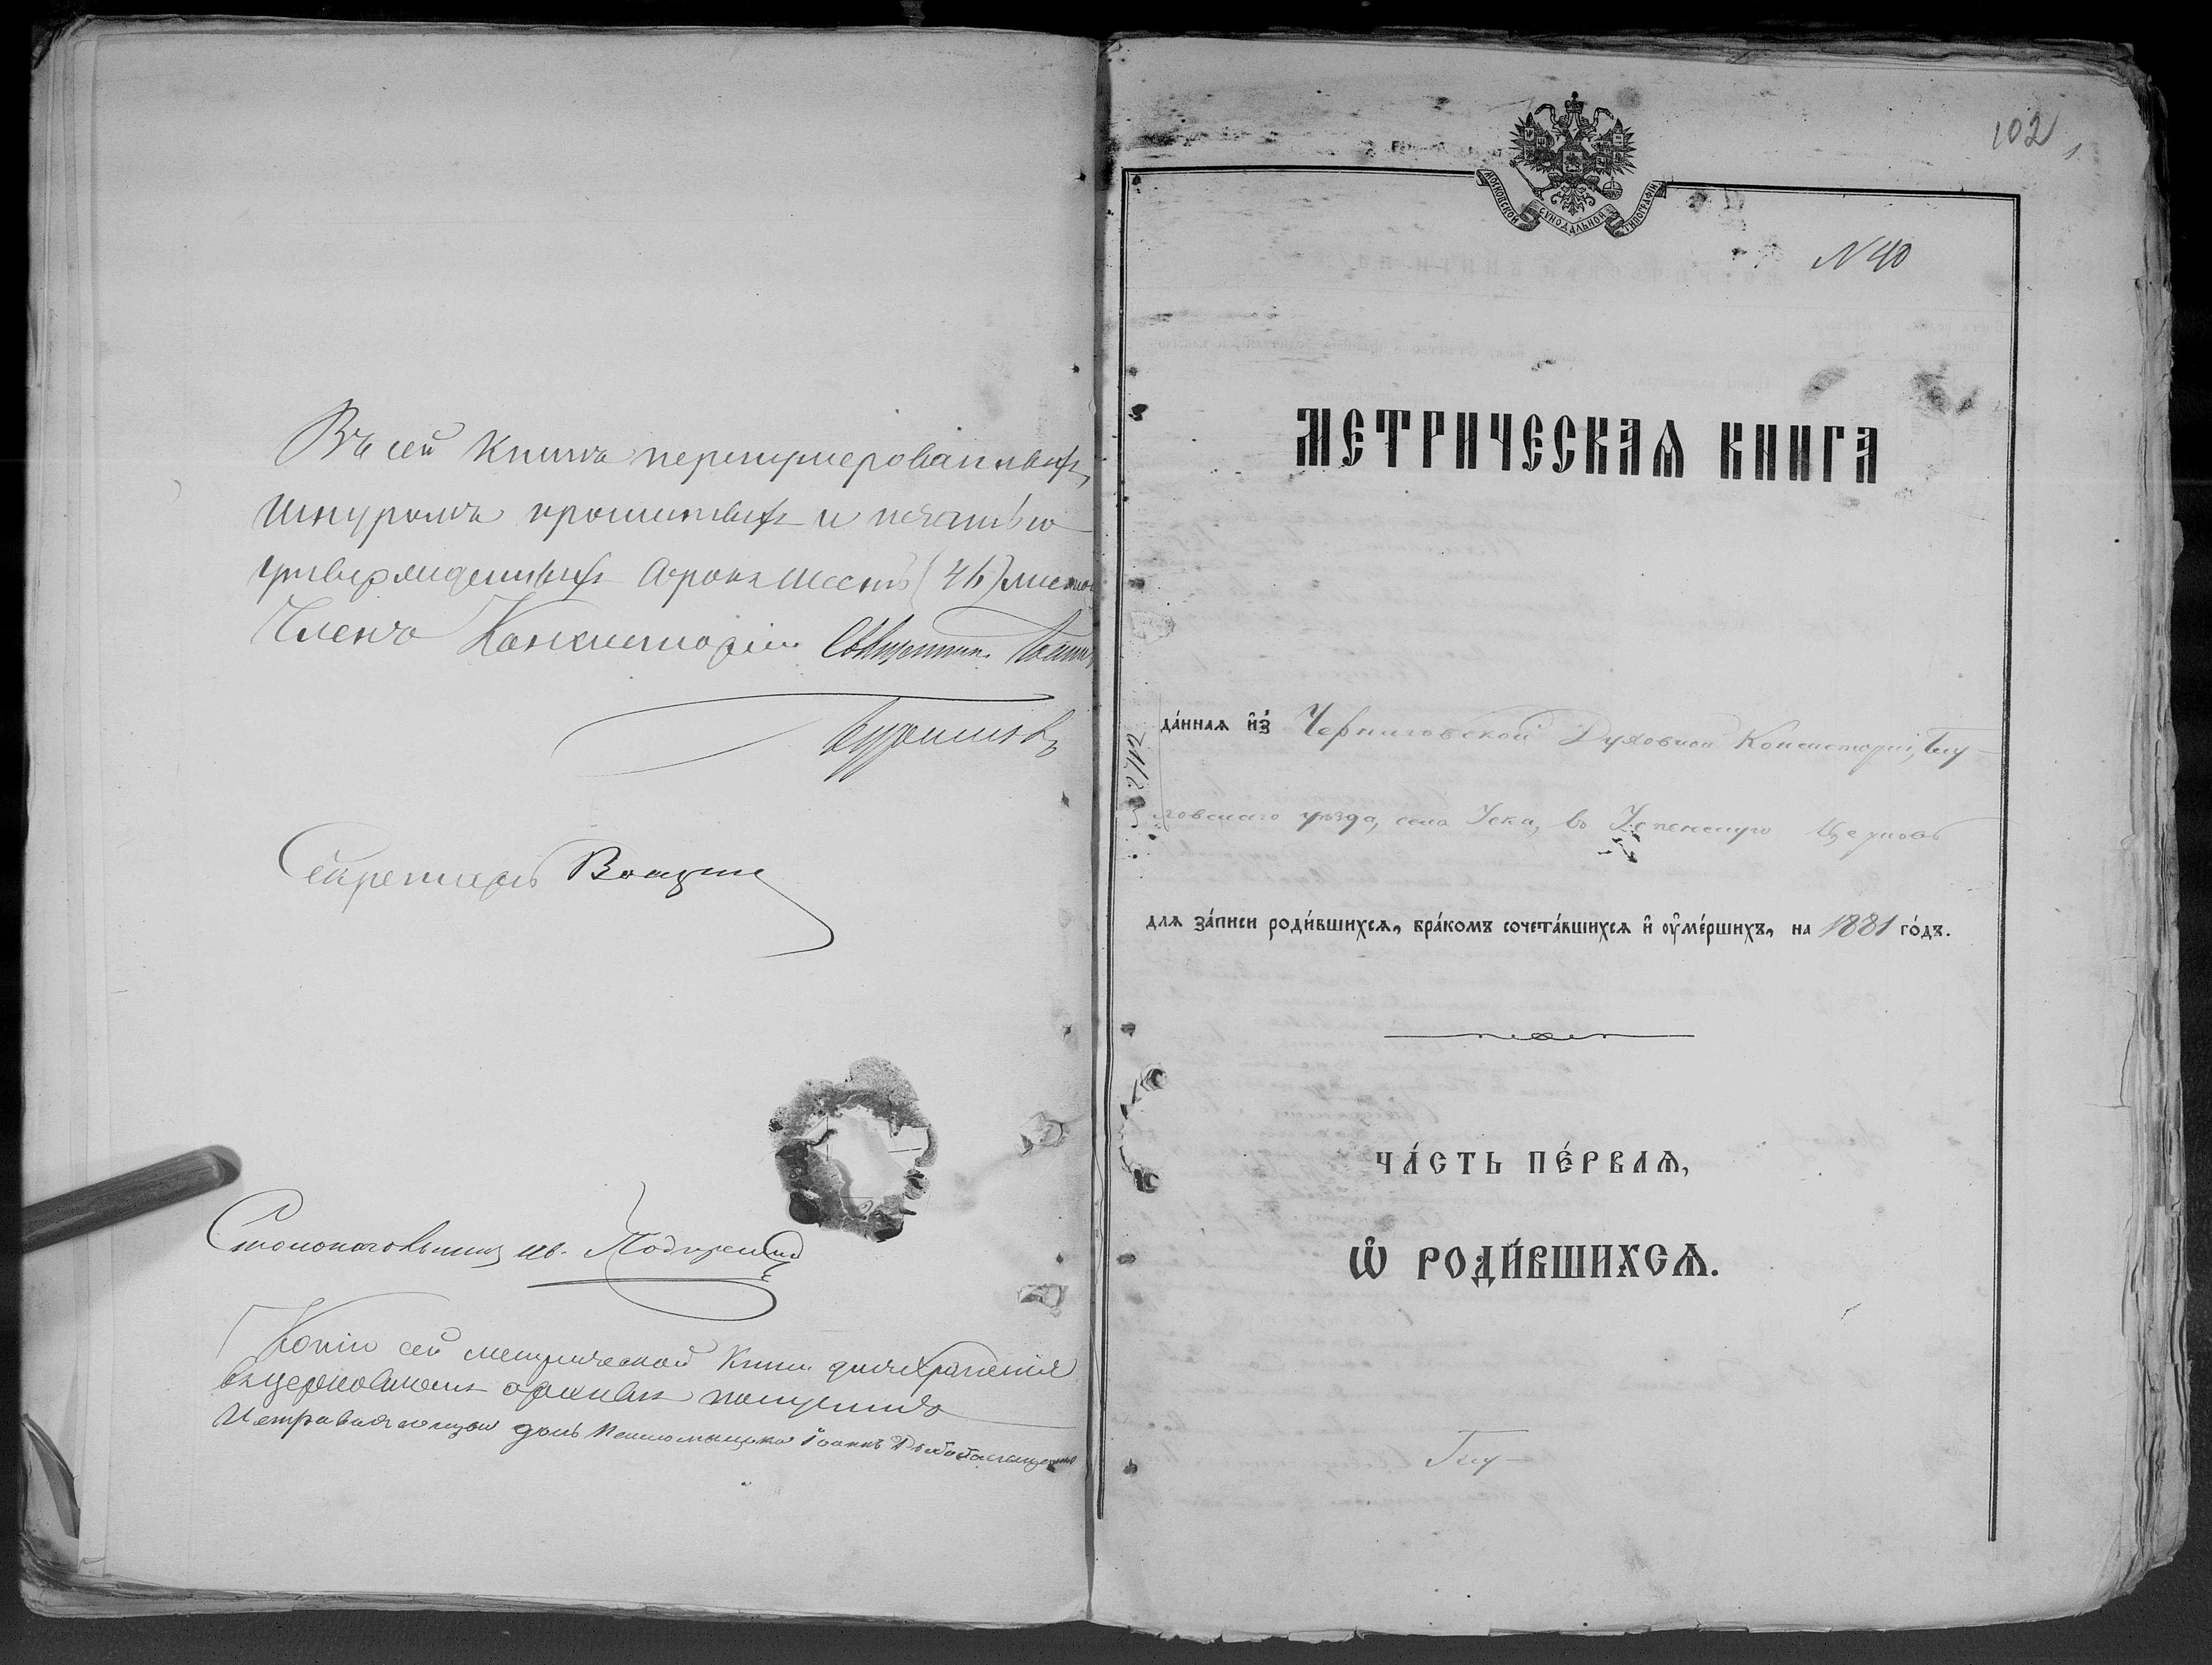 Въ сей книгѣ перенумерованныхъ,
шнуромъ прошитыхъ и печатью
утвержденныхъ сорокъ шесть (46) листов
Членъ Консисторіи Священник Іоаннъ
Секретарь
Столоначальникъ Ив.
Копію сей метрической книги для храненія
въ церковномъ архивѣ получилъ
Исправляющій долж Псаломщика Іоаннъ
102
МОСКОВСКОЙ СѴНОДАЛЬНОЙ ТИПОГРАФІИ
N 40
МЕТРИЧЕСКАѦ КНИГА
да́ннаѧ и҆з̾ Черниговской Духовной Консисторіи, Глу-
ховскаго уѣзда, села Уска, въ Успенскую Церковь
для за́писи роди́вшихсѧ, бра́комъ сочета́вшихсѧ и҆ ᲂу҆ме́ршихъ, на 1881 го́дъ.
ЧА́СТЬ ПЕ́РВАѦ,
Ѽ РОДИ́ВШИХСѦ.
Глу-